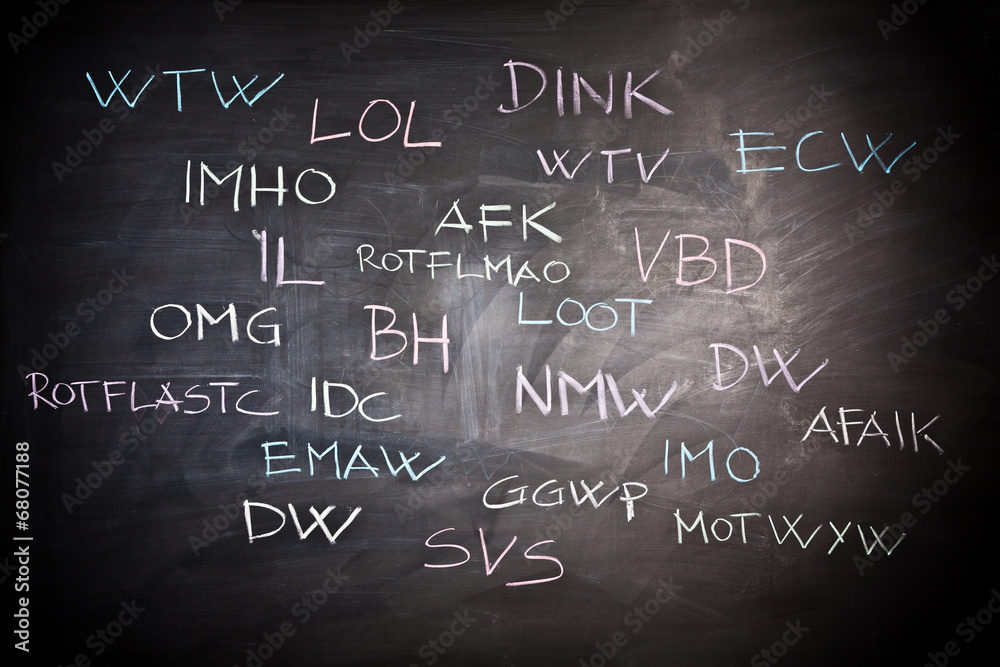 WTW
LOL
DINK
WTV
ECW
IMHO
AFK
IL
ROTFLMAO
VBD
OMG
BH
LOOT
DW
ROTFLASTC
IDC
NMW
AFAIK
EMAW
IMO
GGWP
DW
SVS
MOTWYW
Adobe Stock | #68077188
Adobe Stock